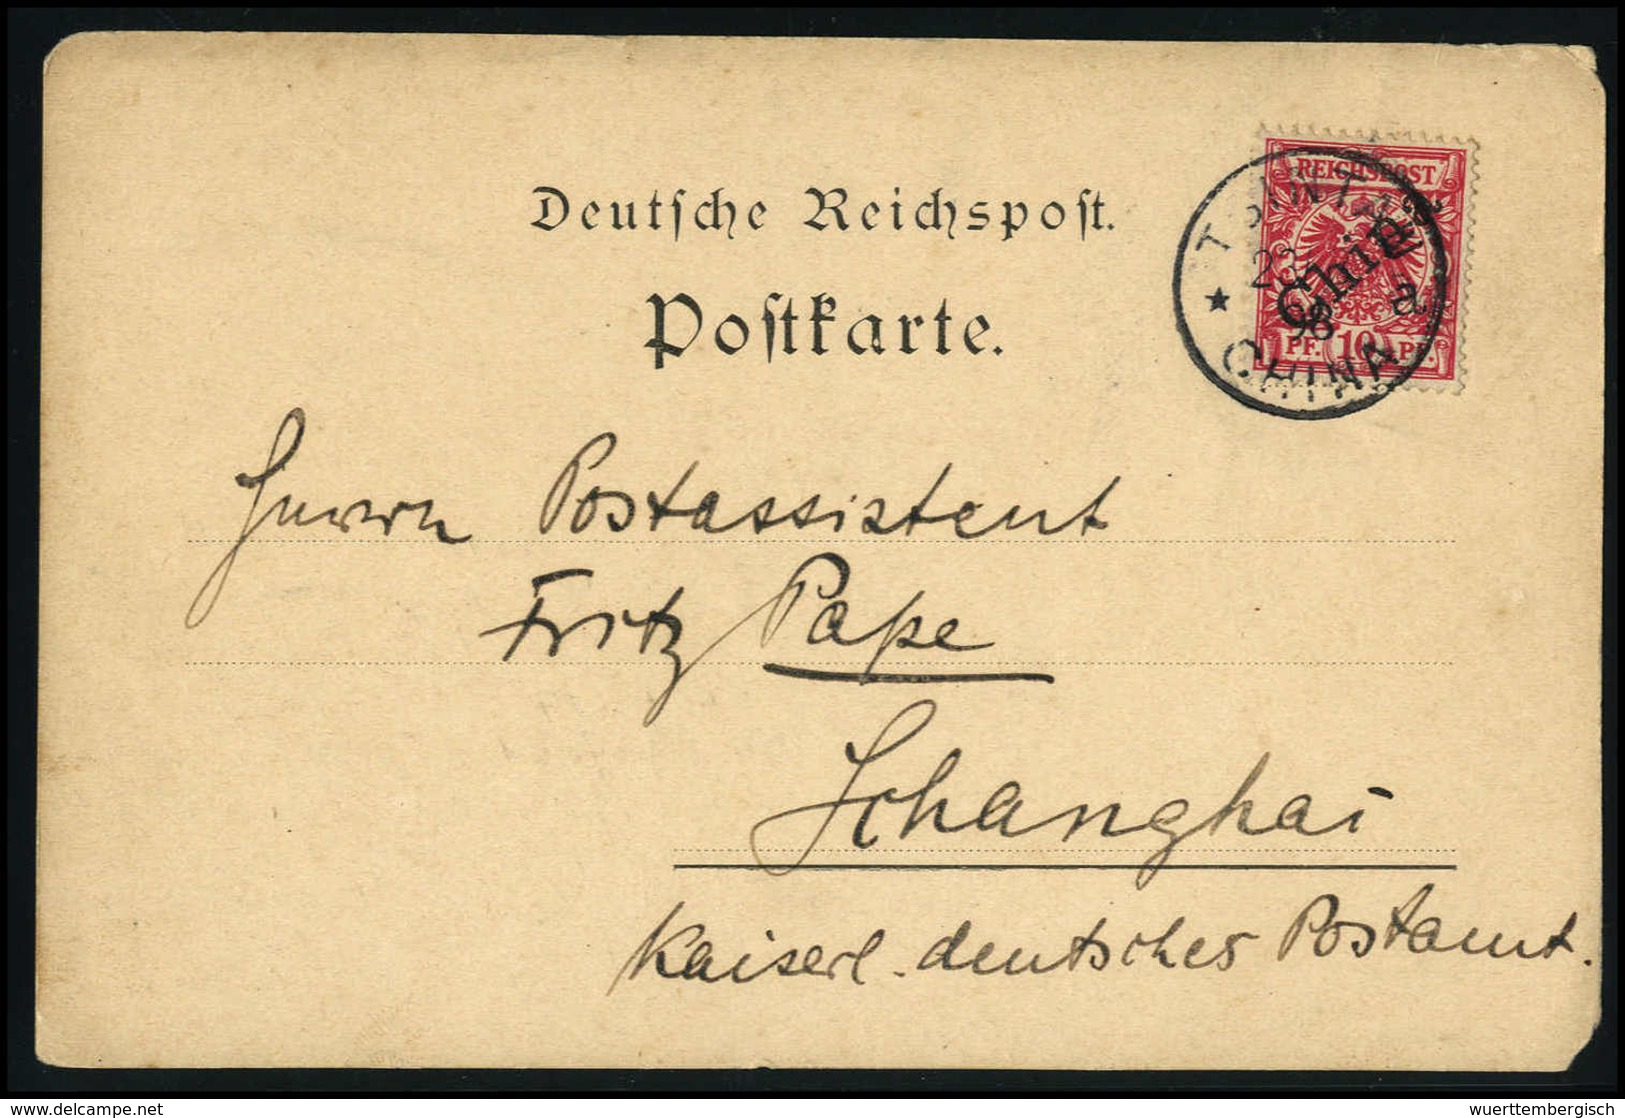 Deutsche Reichspost.
Postkarte.
REICHSPOST
China
PF. 10 PF.
TSINTAU
23
98
a
★ CHINA
Herrn Postassistent
Fritz Pape
Schanghai
Kaiserl. deutsches Postamt.
www.delcampe.net
wuerttembergisch